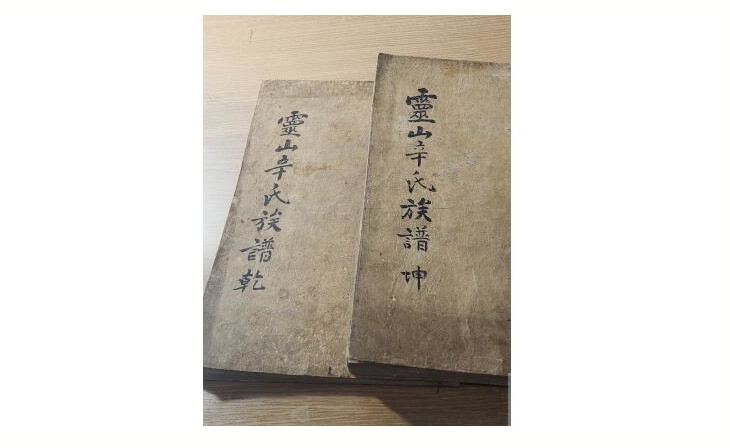 靈山辛氏族譜乾
靈山辛氏族譜坤